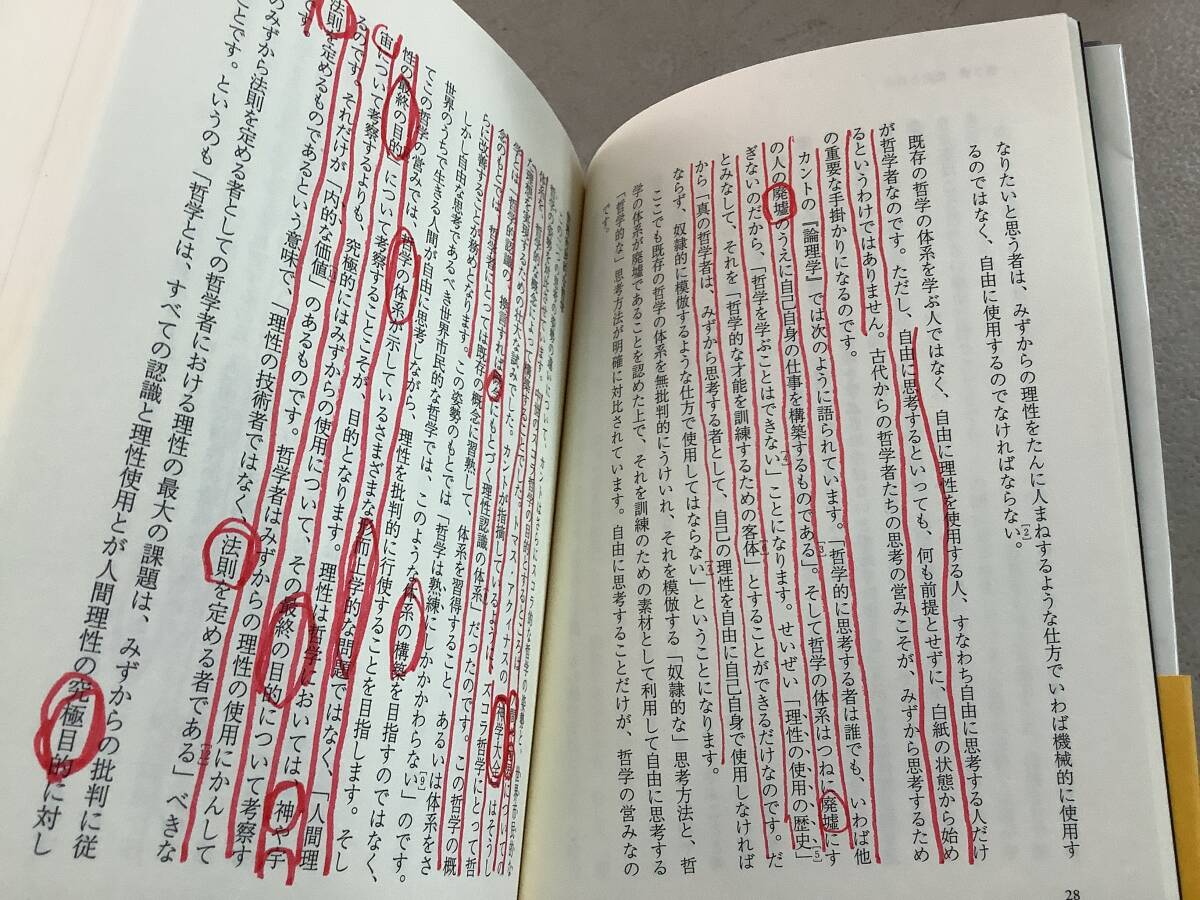 なりたいと思う者は、みずからの理性をたんに人まねするような仕方でいわば機械的に使用す
るのではなく、自由に使用するのでなければならない。[2]
既存の哲学の体系を学ぶ人ではなく、自由に理性を使用する人、すなわち自由に思考する人だけ
が哲学者なのです。ただし、自由に思考するといっても、何も前提とせずに、白紙の状態から始め
るというわけではありません。古代からの哲学者たちの思考の営みこそが、みずから思考するため
の重要な手掛かりになるのです。
カントの『論理学』では次のように語られています。「哲学的に思考する者は誰でも、いわば他
の人の廃墟のうえに自己自身の仕事を構築するものである」[3]。そして哲学の体系はつねに廃墟にす
ぎないのだから、「哲学を学ぶことはできない」[4]ことになります。せいぜい「理性の使用の歴史」[5]
とみなして、それを「哲学的な才能を訓練するための客体」[6]とすることができるだけなのです。だ
から「真の哲学者は、みずから思考する者として、自己の理性を自由に自己自身で使用しなければ
ならず、奴隷的に模倣するような仕方で使用してはならない」[7]ということになります。
ここでも既存の哲学の体系を無批判的にうけいれ、それを模倣する「奴隷的な」思考方法と、哲
学の体系が廃墟であることを認めた上で、それを訓練のための素材として利用して自由に思考する
「哲学的な」思考方法が明確に対比されています。自由に思考することだけが、哲学の営みなの
です。
28
た理想を実現するための壮大な試みでした。カントが指摘しているように、スコラ哲学にとって哲
学とは「哲学的認識の、換言すれば
にもとづく理性認識の体系」だったのです。この哲学の概
念のもとでは、哲学者にとっては既存の概念に習熟して、体系を習得すること、あるいは体系をさ
らに改善することが務めとなります。この姿勢のもとでは「哲学は熟練にしかかかわらない」[9]のです。
しかし自由な思考であるべき世界市民的な哲学では、このような体系の構築を目指すのではなく、
世界のうちで生きる人間が自由に思考しながら、理性を批判的に行使することを目指します。そし
てこの哲学の営みでは、哲学の体系が示しているさまざまな形而上学的な問題ではなく、「人間理
性の最終の目的」について考察することこそが、目的となります。理性は哲学においては、神や宇
宙について考察するよりも、究極的にはみずからの使用について、その最終の目的について考察す
るのです。それだけが「内的な価値」のあるものです。哲学者はみずからの理性の使用にかんして
法則を定めるものであるという意味で、「理性の技術者ではなく、法則を定める者である」べきな
です。
のみずから法則を定める者としての哲学者における理性の最大の課題は、みずからの批判に従
ことです。というのも「哲学とは、すべての認識と理性使用とが人間理性の究極目的に対し